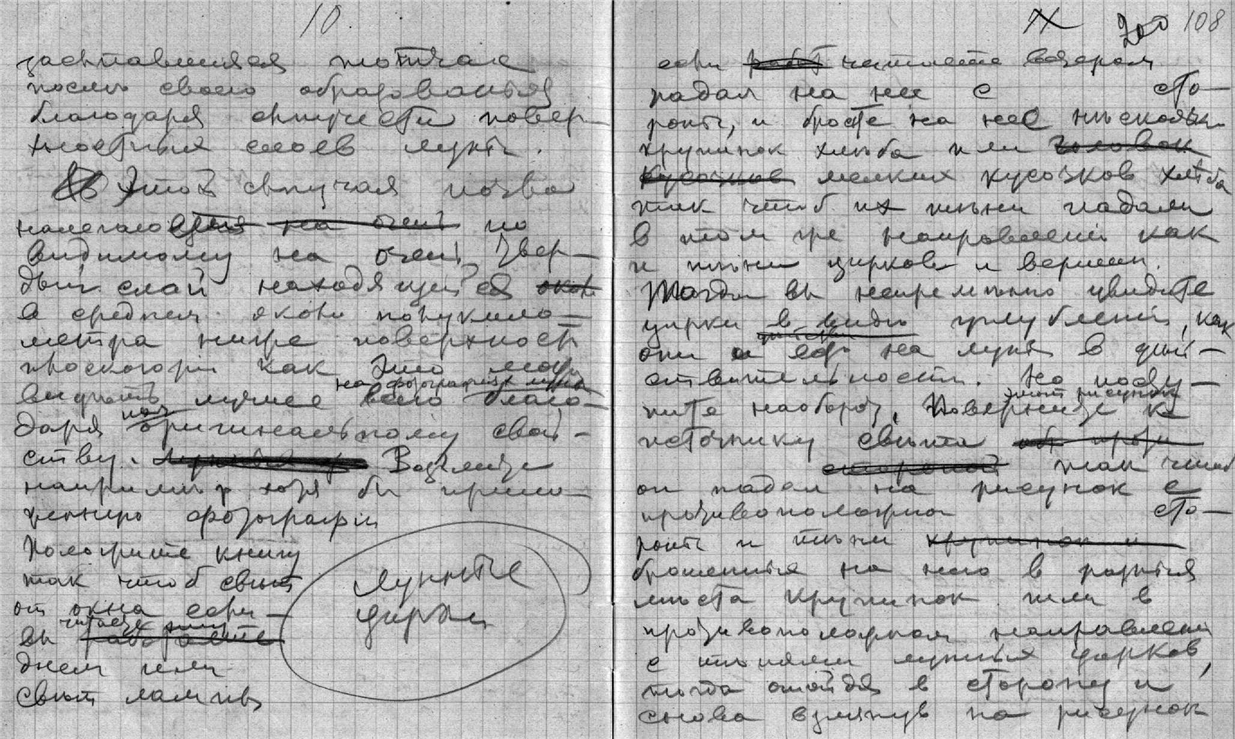 10.
застывшая тотчас
после своего образованія
благодаря сыпучести повер-
хностных слоев луны.
Этот случай
налегает по
видимому на очень твер-
дый слой находящийся
в среднем около полукило-
метра ниже поверхности
как это
видеть лучше всего на фотографиях луны благо-
даря их оригинальному свой-
ству. Возьмите
например хотя бы прило-
женную фотографію
Положите книгу
так чтоб свѣт
от окна если
вы читаете эту
днем или
свѣт лампы
лунные
цирки
IX 200 108
если читаете вечером
падал на нее с сто-
роны, и бросьте на нее нѣсколько
крупинок хлѣба или человек
кусочков мелких кусочков хлѣба
так чтоб их тѣни падали
в том же направленіи как
и тѣни цирков и вершин.
Тогда вы непремѣнно увидите
цирки в видѣ углубленій, как
они и есть на лунѣ в дѣй-
ствительности. Но посту-
пите наоборот. Поверните этот рисунок к
источнику свѣта так чтоб
он падал на рисунок с
противоположной сто-
роны и тѣни крупинок и
брошенных на него в разныя
мѣста крупинок шли в
противоположном направленіи
с тѣнями лунных цирков,
тогда отойдя в сторону и
снова взглянув на рисунок